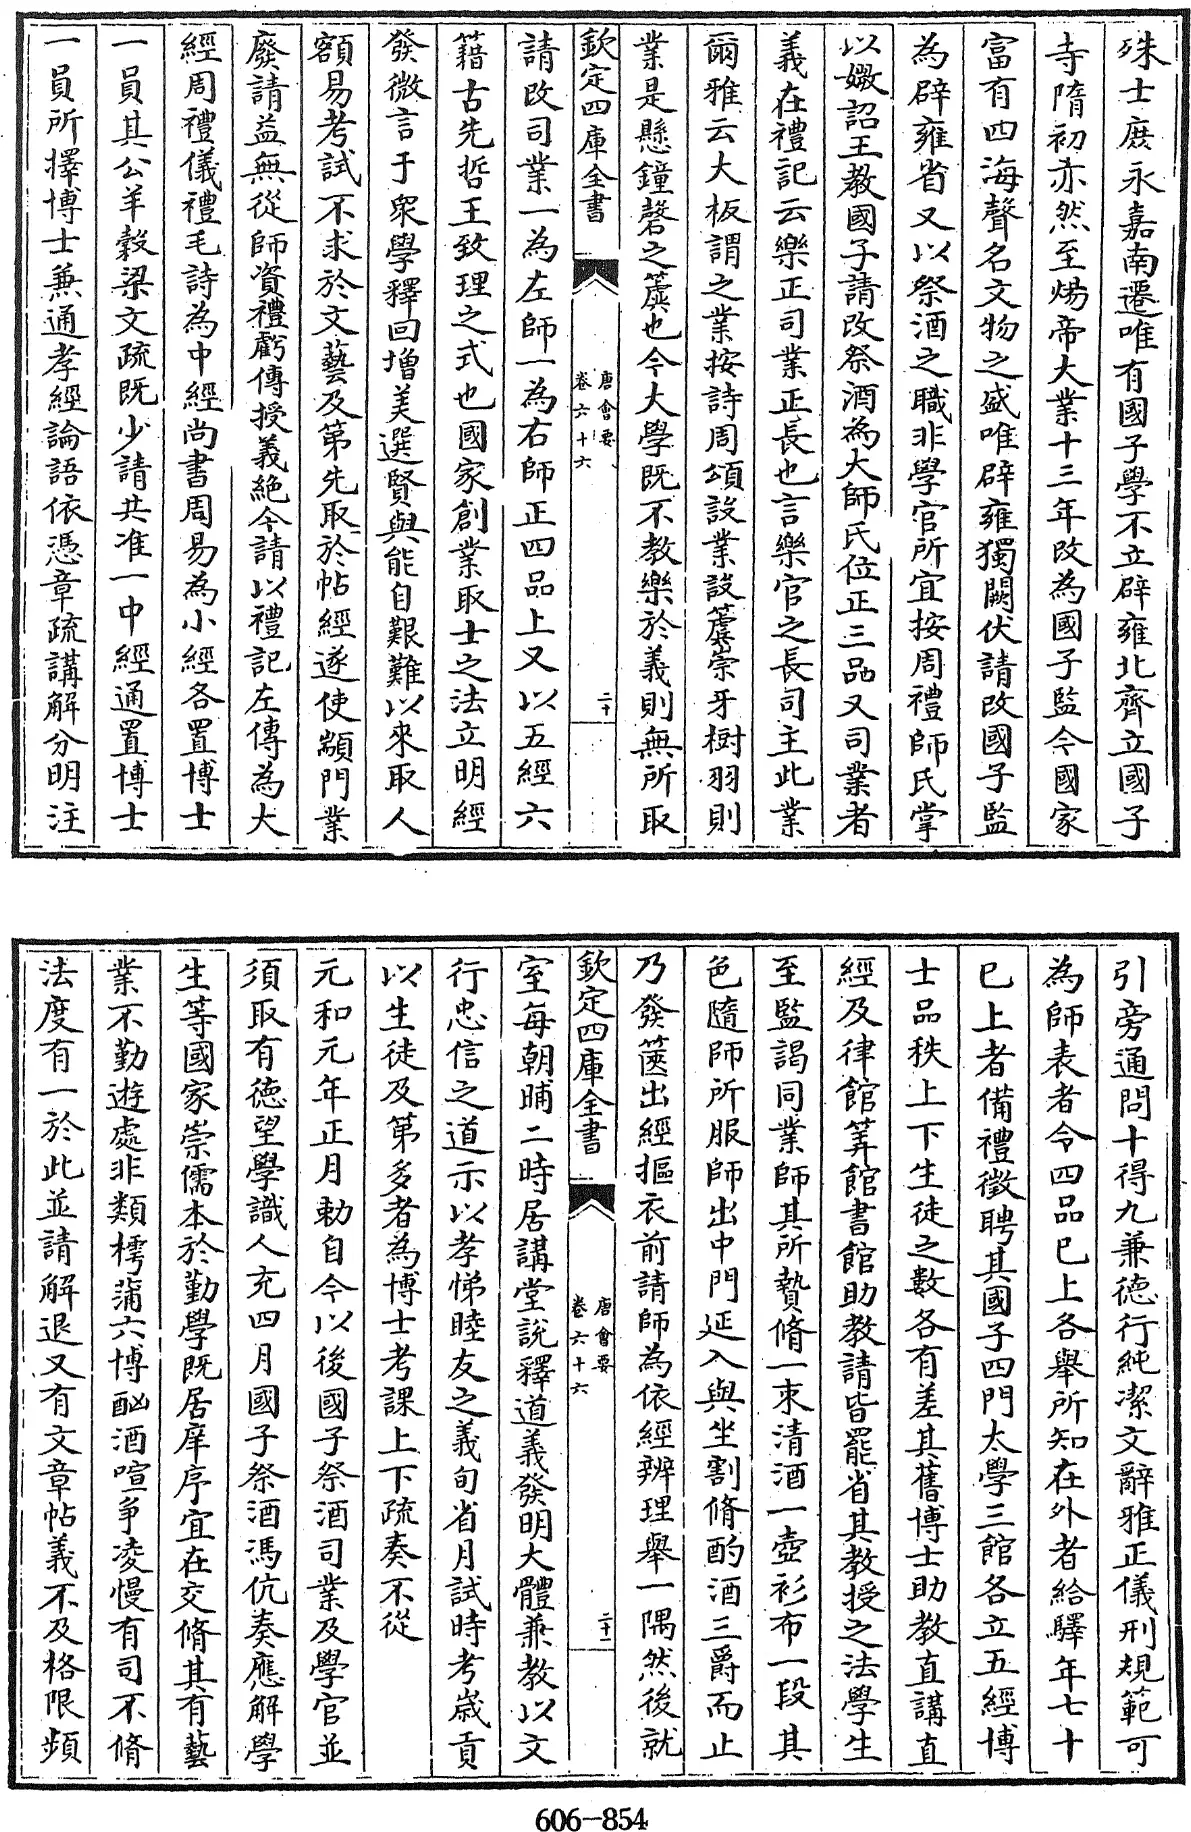 殊士庶永嘉南遷唯有國子學不立辟雍北齊立國子
寺隋初亦然至煬帝大業十三年改為國子監今國家
富有四海聲名文物之盛唯辟雍獨闕伏請改國子監
為辟雍省又以祭酒之職非學官所宜按周禮師氏掌
以媺詔王教國子請改祭酒為大師氏位正三品又司業者
義在禮記云樂正司業正長也言樂官之長司主此業
爾雅云大板謂之業按詩周頌設業設簴崇牙樹羽則
業是懸鐘磬之簴也今大學既不教樂於義則無所取
欽定四庫全書
唐會要
卷六十六
二十
請改司業一為左師一為右師正四品上又以五經六
籍古先哲王致理之式也國家創業取士之法立明經
發微言于衆學釋回增美選賢與能自艱難以來取人
額易考試不求於文藝及第先取於帖經遂使顓門業
廢請益無從師資禮虧傳授義絶今請以禮記左傳為大
經周禮儀禮毛詩為中經尚書周易為小經各置博士
一員其公羊穀梁文疏既少請共准一中經通置博士
一員所擇博士兼通孝經論語依憑章疏講解分明注
引旁通問十得九兼德行純潔文辭雅正儀刑規範可
為師表者令四品已上各舉所知在外者給驛年七十
已上者備禮徵聘其國子四門太學三館各立五經博
士品秩上下生徒之數各有差其舊博士助教直講直
經及律館筭館書館助教請皆罷省其教授之法學生
至監謁同業師其所贄脩一束清酒一壺衫布一段其
色隨師所服師出中門延入與坐割脩酌酒三爵而止
乃發篋出經摳衣前請師為依經辨理舉一隅然後就
欽定四庫全書
唐會要
卷六十六
二十一
室每朝晡二時居講堂說釋道義發明大體兼教以文
行忠信之道示以孝悌睦友之義旬省月試時考歲貢
以生徒及第多者為博士考課上下疏奏不從
元和元年正月勅自今以後國子祭酒司業及學官並
須取有德望學識人充四月國子祭酒馮伉奏應解學
生等國家崇儒本於勤學既居庠序宜在交脩其有藝
業不勤遊處非類樗蒲六博酗酒喧爭凌慢有司不脩
法度有一於此並請解退又有文章帖義不及格限頻
606-854